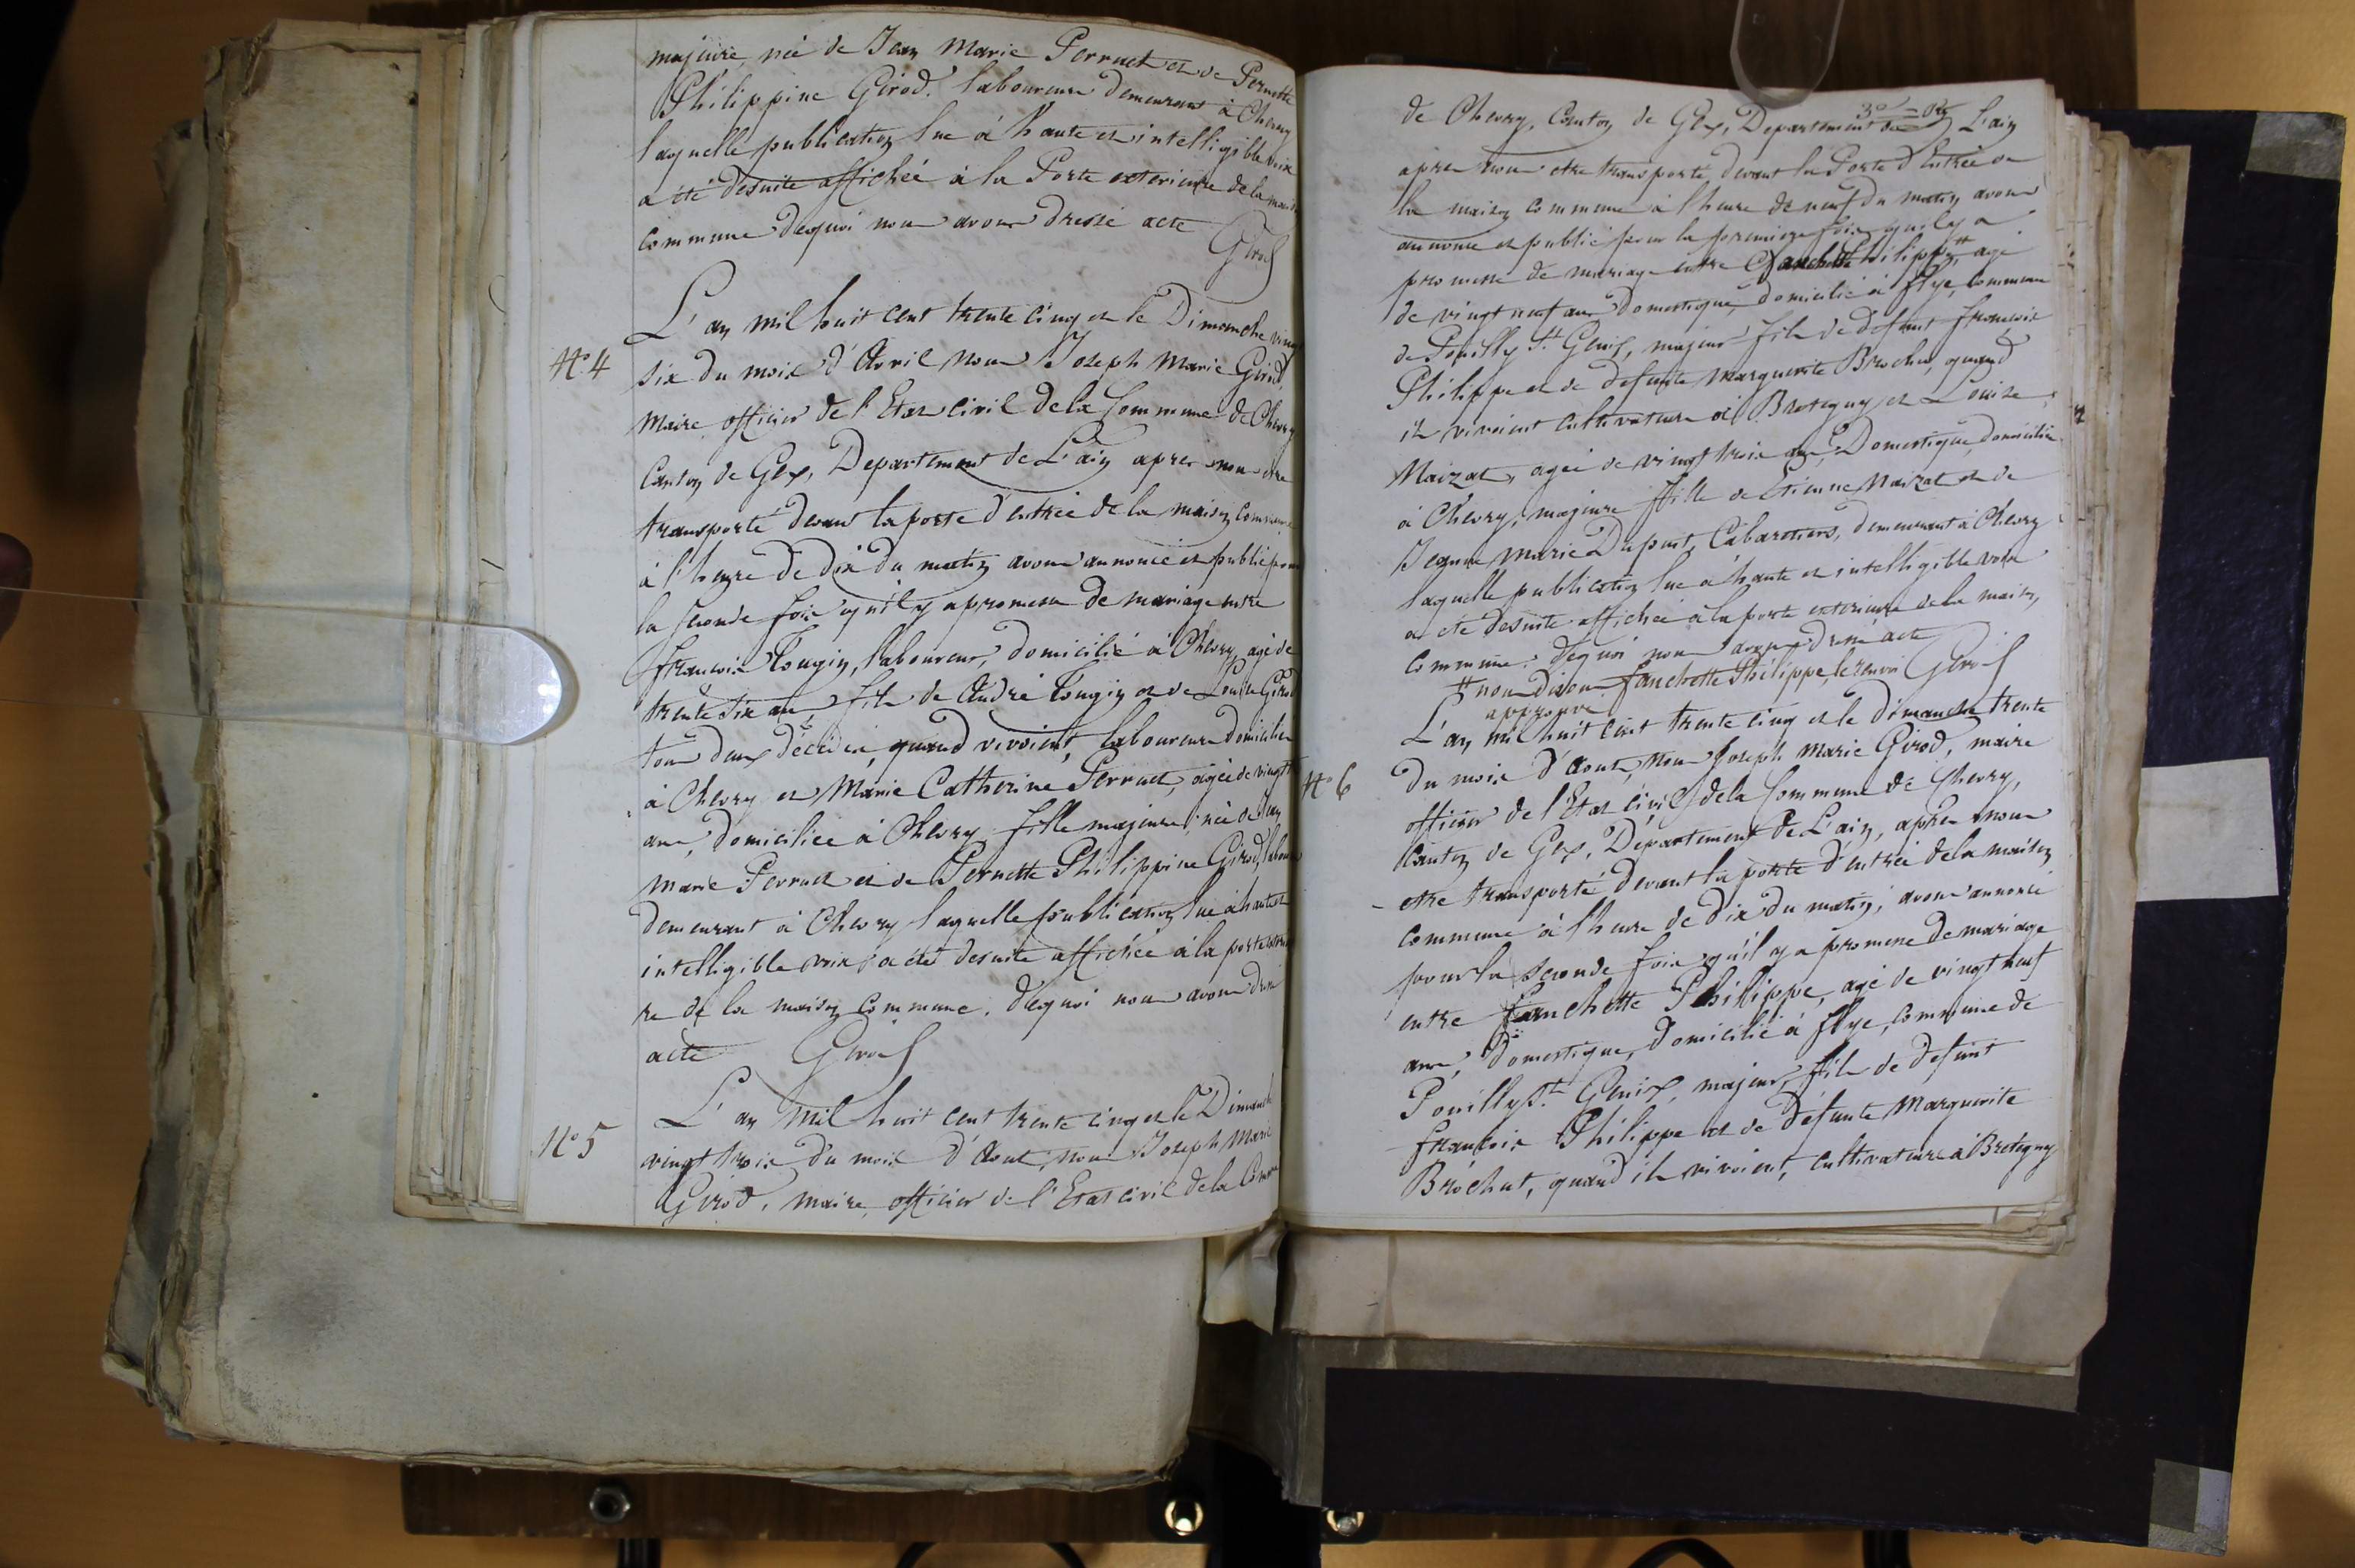 majeure, née de Jean Marie Perruet et de Pernette
Philippine Girod. laboureurs demeurant à Chevry
laquelle publication lue à haute et intelligible voix
a été desuite affichée à la Porte exterieure de la maison
commune dequoi nous avons dressé acte
Girod
N.o 4
L'an mil huit cent trente cinq et le Dimanche vingt
six du mois d'Avril nous Joseph Marie Girod,
Maire officier de l'Etat civil de la Commune de Chevry
Canton de Gex, Departement de L'ain apres nous etre
transporté devant la porte d'entrée de la maison commune
à l'heure de dix du matin avons annoncé et publié pour
la seconde fois qu'il y a promesse de mariage entre
francois Tougin, laboureur, domicilié à Chevry, agé de
trente six ans, fils de André Tougin et de Louise Girod
tous deux décédés, quand vivoient, laboureurs domiciliés
à Chevry et Marie Catherine Perruet, agée de vingt
ans, domiciliée à Chevry fille majeure, née de Jean
Marie Perruet et de Pernette Philippine Girod, laboureurs
demeurant à Chevry laquelle publication lue à haute et
intelligible voix, a été desuite affichée à la porte exterieu
re de la maison commune. dequoi nous avons dressé
acte Girod
N.o 5
L'an mil huit cent trente cinq et le Dimanche
vingt trois du mois d'Aout, nous Joseph Marie
Girod, maire, officier de l'Etat civil de la Commune
de Chevry, Canton de Gex, Departement de L'ain
apres nous etre transporté, devant la Porte d'Entrée de
la maison commune à l'heure de neuf du matin avons
annoncé et publié pour la premiere fois qu'il y a
promesse de mariage entre Fanchette Philippe # agé
de vingt neuf ans domestique, domicilié à flye, commune
de Pouilly S.t Genix, majeur fils de défunt francois
Philippe et de defunte Marguerite Brochut, quand
ils vivoient cultivateurs à Bretigny et Louise
Maizat, agée de vingt trois ans, Domestique, domiciliée
à Chevry, majeure fille de Etienne Maizat et de
Jeanne Marie Dupuit, Cabaretiers, demeurant à Chevry
laquelle publication lue à haute et intelligible voix
a été desuite affichée à la porte exterieure de la maison
commune. dequoi nous avons dressé acte
# nous disons fanchette Philippe, le renvoi Girod
approuvé
N.o 6
L'an mil huit cent trente cinq et le dimanche trente
du mois d'Aout, nous Joseph Marie Girod, maire
officier de l'Etat civil de la Commune de Chevry,
Canton de Gex, Département de L'ain, apres nous
etre transporté devant la porte d'entrée de la maison
commune à l'heure de dix du matin, avons annoncé
pour la seconde fois qu'il y a promesse de mariage
entre fanchette Philippe, agé de vingt neuf
ans, domestique, domicilié à flye, commune de
Pouilly S.t Genix, majeur, fils de defunt
francois Philippe et de défunte Marguerite
Brochut, quand ils vivoient, cultivateurs à Brétigny